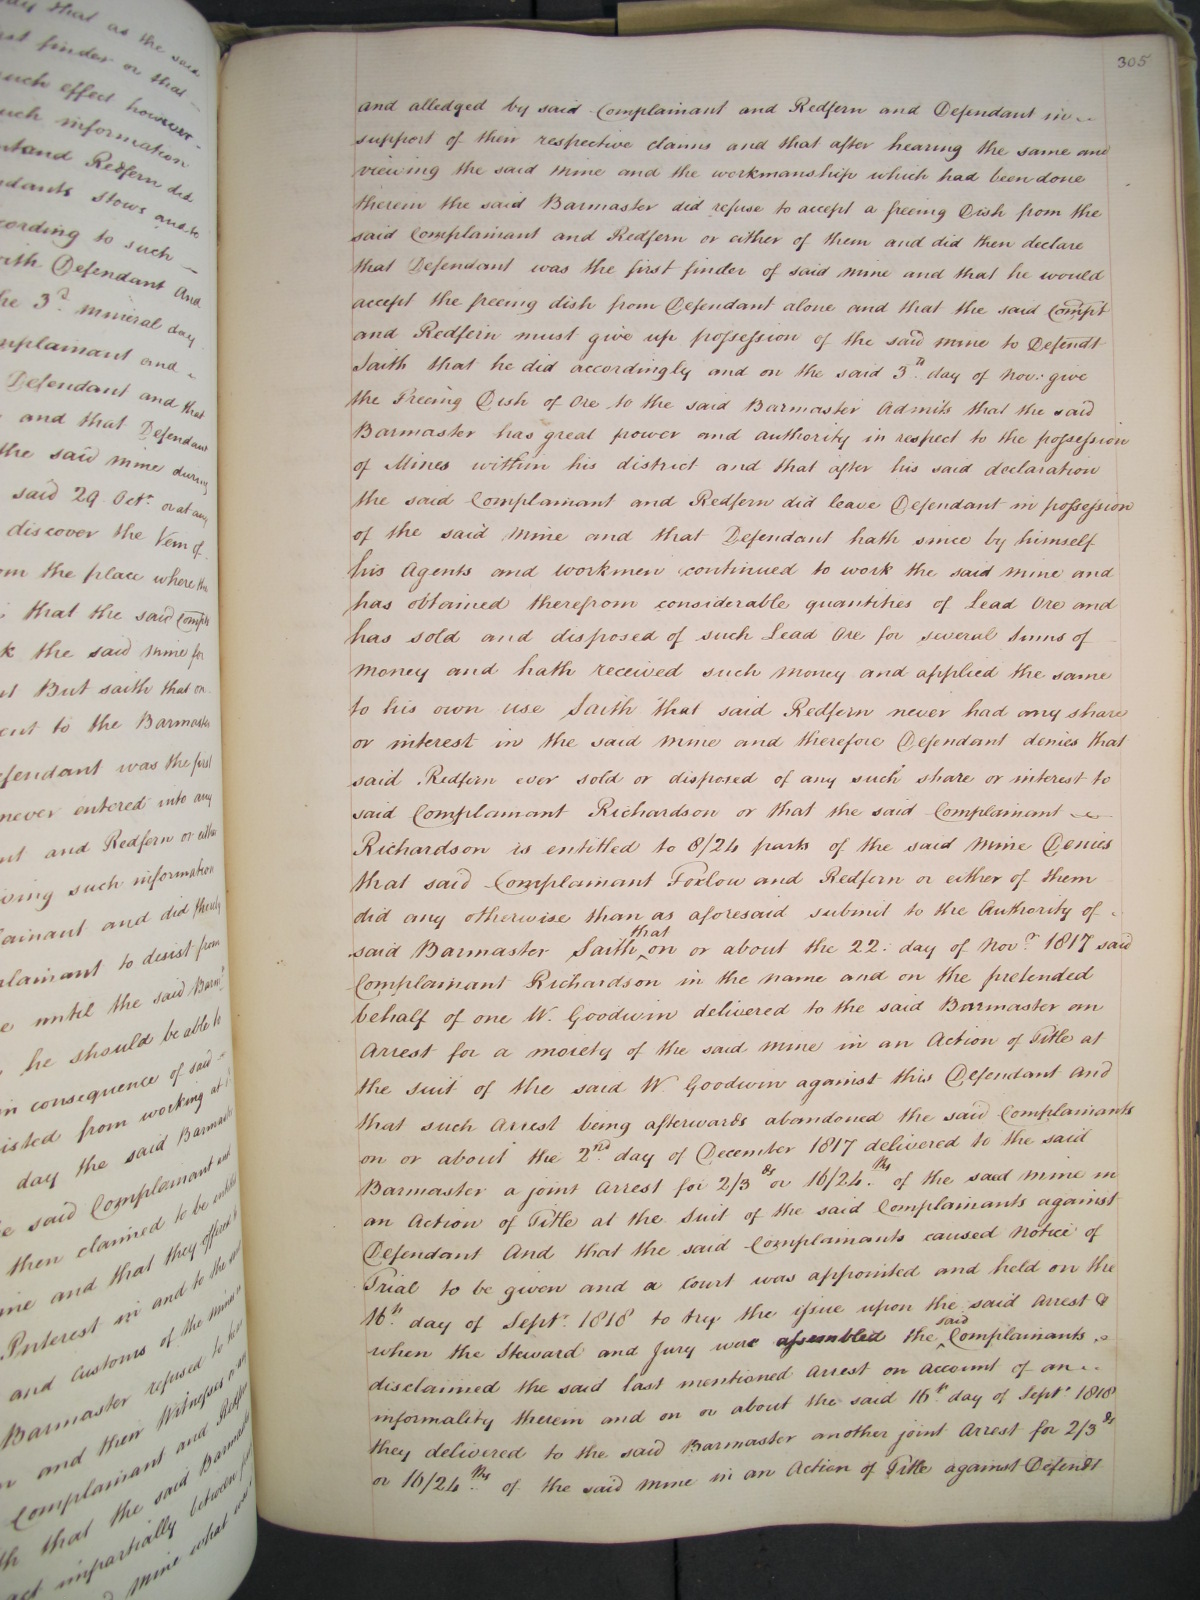 say that as the said
first finder or that
such effect however
such information
and Redfern did
Defendants Stows and to
according to such
with Defendant And
the 3d. mineral day
Complainant and
Defendant and that
and that Defendant
the said mine during
said 29 Octr. or at any
discover the Vein of
from the place where the
that the said Complt
work the said mine for
But saith that on
went to the Barmaster
Defendant was the first
never entered into any
and Redfern or either
giving such information
Complainant and did thereby
Complainant to desist from
until the said Barmr
he should be able to
in consequence of said
desisted from working at
day the said Barmaster
the said Complainant and
then claimed to be entitled
mine and that they offered
Interest in and to the
and Customs of the
Barmaster refused to
and their Witnesses
Complainant and Redfern
that the said Barmaster
act impartially between
mine what was
305
and alledged by said Complainant and Redfern and Defendant in
support of their respective claims and that after hearing the same and
viewing the said Mine and the workmanship which had been done
therein the said Barmaster did refuse to accept a freeing Dish from the
said Complainant and Redfern or either of them and did then declare
that Defendant was the first finder of said mine and that he would
accept the freeing dish from Defendant alone and that the said Complt
and Redfern must give up possession of the said mine to Defendt
Saith that he did accordingly and on the said 3d. day of Nov: give
the Freeing Dish of Ore to the said Barmaster Admits that the said
Barmaster has great power and authority in respect to the possession
of Mines within his district and that after his said declaration
the said Complainant and Redfern did leave Defendant in possession
of the said Mine and that Defendant hath since by himself
his Agents and workmen continued to work the said mine and
has obtained therefrom considerable quantities of Lead Ore and
has sold and disposed of such Lead Ore for several Sums of
Money and hath received such Money and applied the same
to his own use Saith that said Redfern never had any share
or interest in the said Mine and therefore Defendant denies that
said Redfern ever sold or disposed of any such share or interest to
said Complainant Richardson or that the said Complainant
Richardson is entitled to 8/24 parts of the said Mine Denies
that said Complainant Foxlow and Redfern or either of them
did any otherwise than as aforesaid submit to the Authority of
said Barmaster Saith that on or about the 22. day of Novr. 1817 said
Complainant Richardson in the name and on the pretended
behalf of one W. Goodwin delivered to the said Barmaster an
Arrest for a moiety of the said Mine in an Action of Title at
the Suit of the said W. Goodwin against this Defendant And
that such Arrest being afterwards abandoned the said Complainants
on or about the 2nd. day of December 1817 delivered to the said
Barmaster a joint Arrest for 2/3ds or 16/24.ths of the said mine in
an Action of Title at the Suit of the said Complainants against
Defendant And that the said Complainants caused Notice of
Trial to be given and a Court was appointed and held on the
16th. day of Septr. 1818 to try the issue upon the said Arrest &
when the Steward and Jury were assembled the said Complainants
disclaimed the said last mentioned Arrest on Account of an
informality therein and on or about the said 16th. day of Septr. 1818
they delivered to the said Barmaster another joint Arrest for 2/3ds
or 16/24ths. of the said Mine in an Action of Title against Defendt